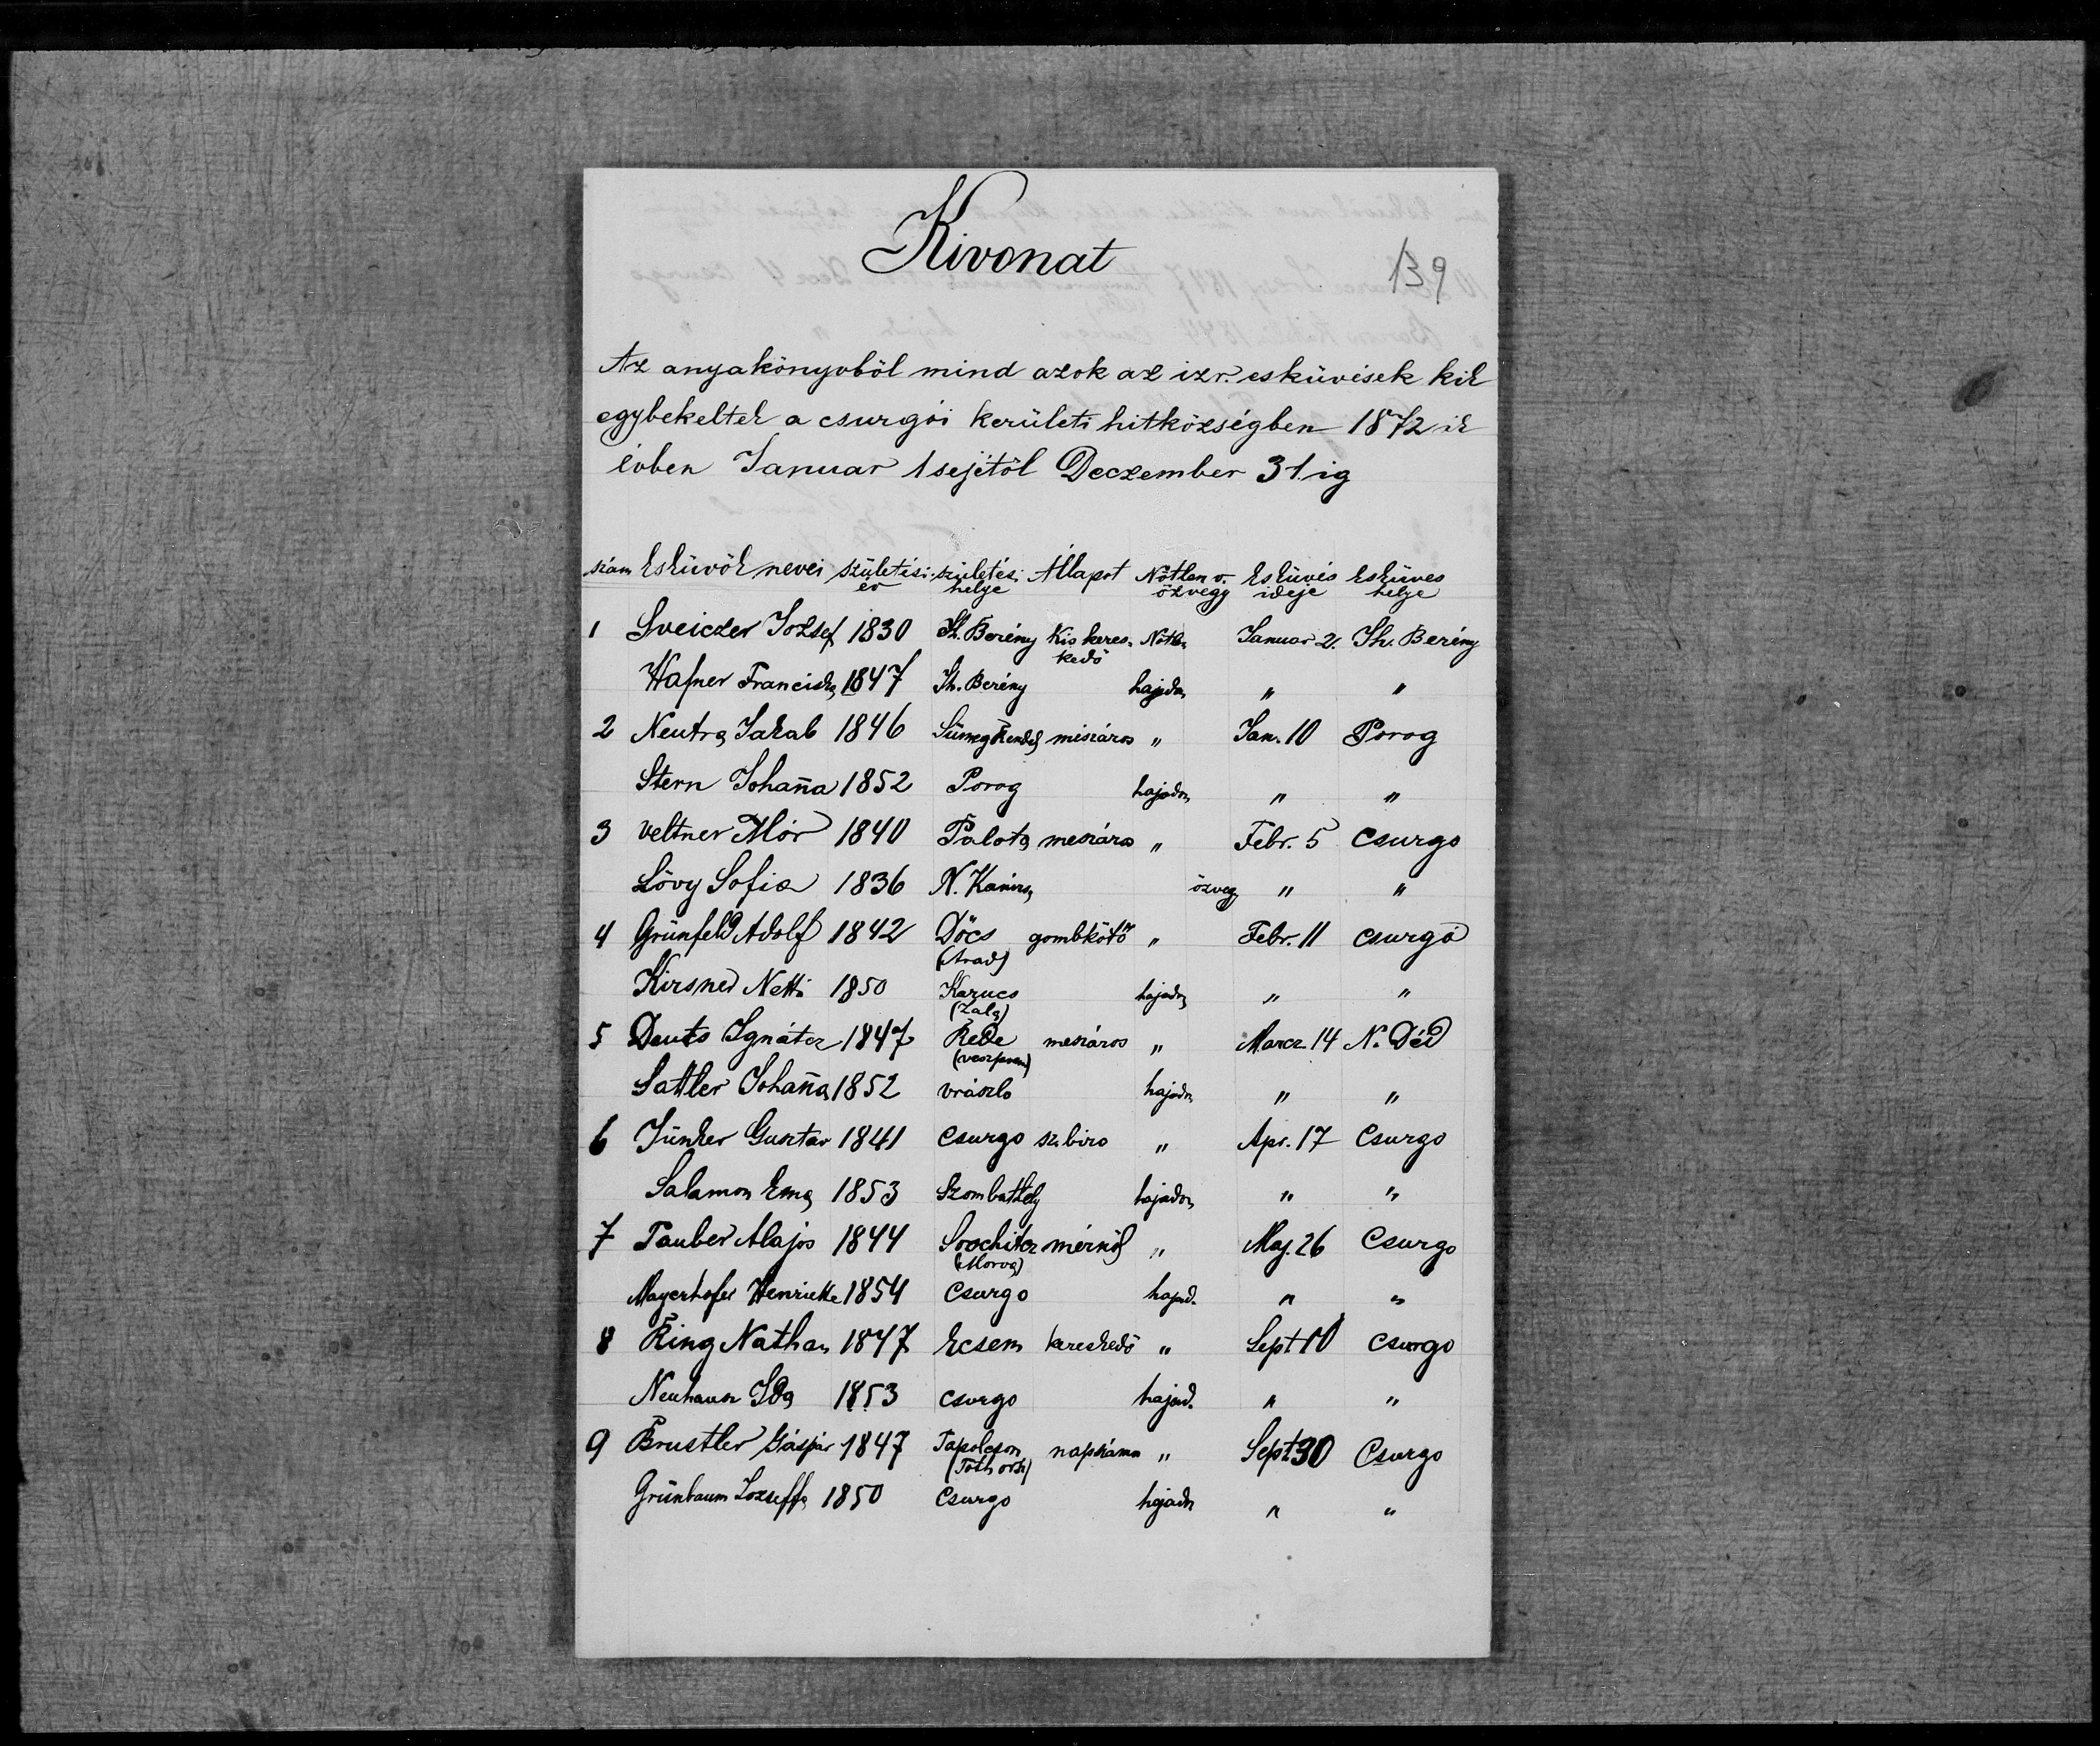 Kivonat
139
Az anyakönyvböl mind azok az izr. esküvések kik
egybekeltek a csurgói kerületi hitközségben 1872 ik
évben Januar 1 sejétöl Deczember 31. ig
szám Esküvök nevei születési év születési helye Állapot Nötlen v. özvegy Esküvés ideje Esküves helye
1 Sveiczer Jozsef 1830 Sh. Berény Kis keres-kedö Nötln Januar 2. Sh. Berény
Hafner Franciska 1847 Sh. Berény hajadn " "
2 Neutra Jakab 1846 Sümeg mészáros " Jan. 10 Porog
Stern Johana 1852 Porog hajadon " "
3 Veltner Mór 1840 Palota meszáros " Febr. 5 Csurgo
Lövy Sofia 1836 N. Kanizsa özvegy " "
4 Grünfeld Adolf 1842 Döcs (Arad) gombkötö " Febr. 11 Csurgó
Kirsner Netti 1850 Karucs (Zala) hajadon " "
5 Deuts Ignátcz 1847 Réde (veszprem) meszáros " Marcz 14 N. Déd
Sattler Johana 1852 vrászlo hajadn " "
6 Junker Gusztav 1841 Csurgo sz. biro " Apr. 17 Csurgo
Salamon Ema 1853 Szombathely hajadon " "
7 Tauber Alajos 1844 (Morva) mérnök " Maj. 26 Csurgo
Mayerhofer Henriette 1854 Csurgo hajad. " "
8 Ring Nathan 1847 Ecsem kereskedö " Sept 10 Csurgo
Ida 1853 Csurgo hajad. " "
9 Brustler Gáspár 1847 Tapolcson (Toth orsz) napszámos " Sept 30 Csurgo
Grünbaum Jozseffa 1850 Csurgo hajadn " "